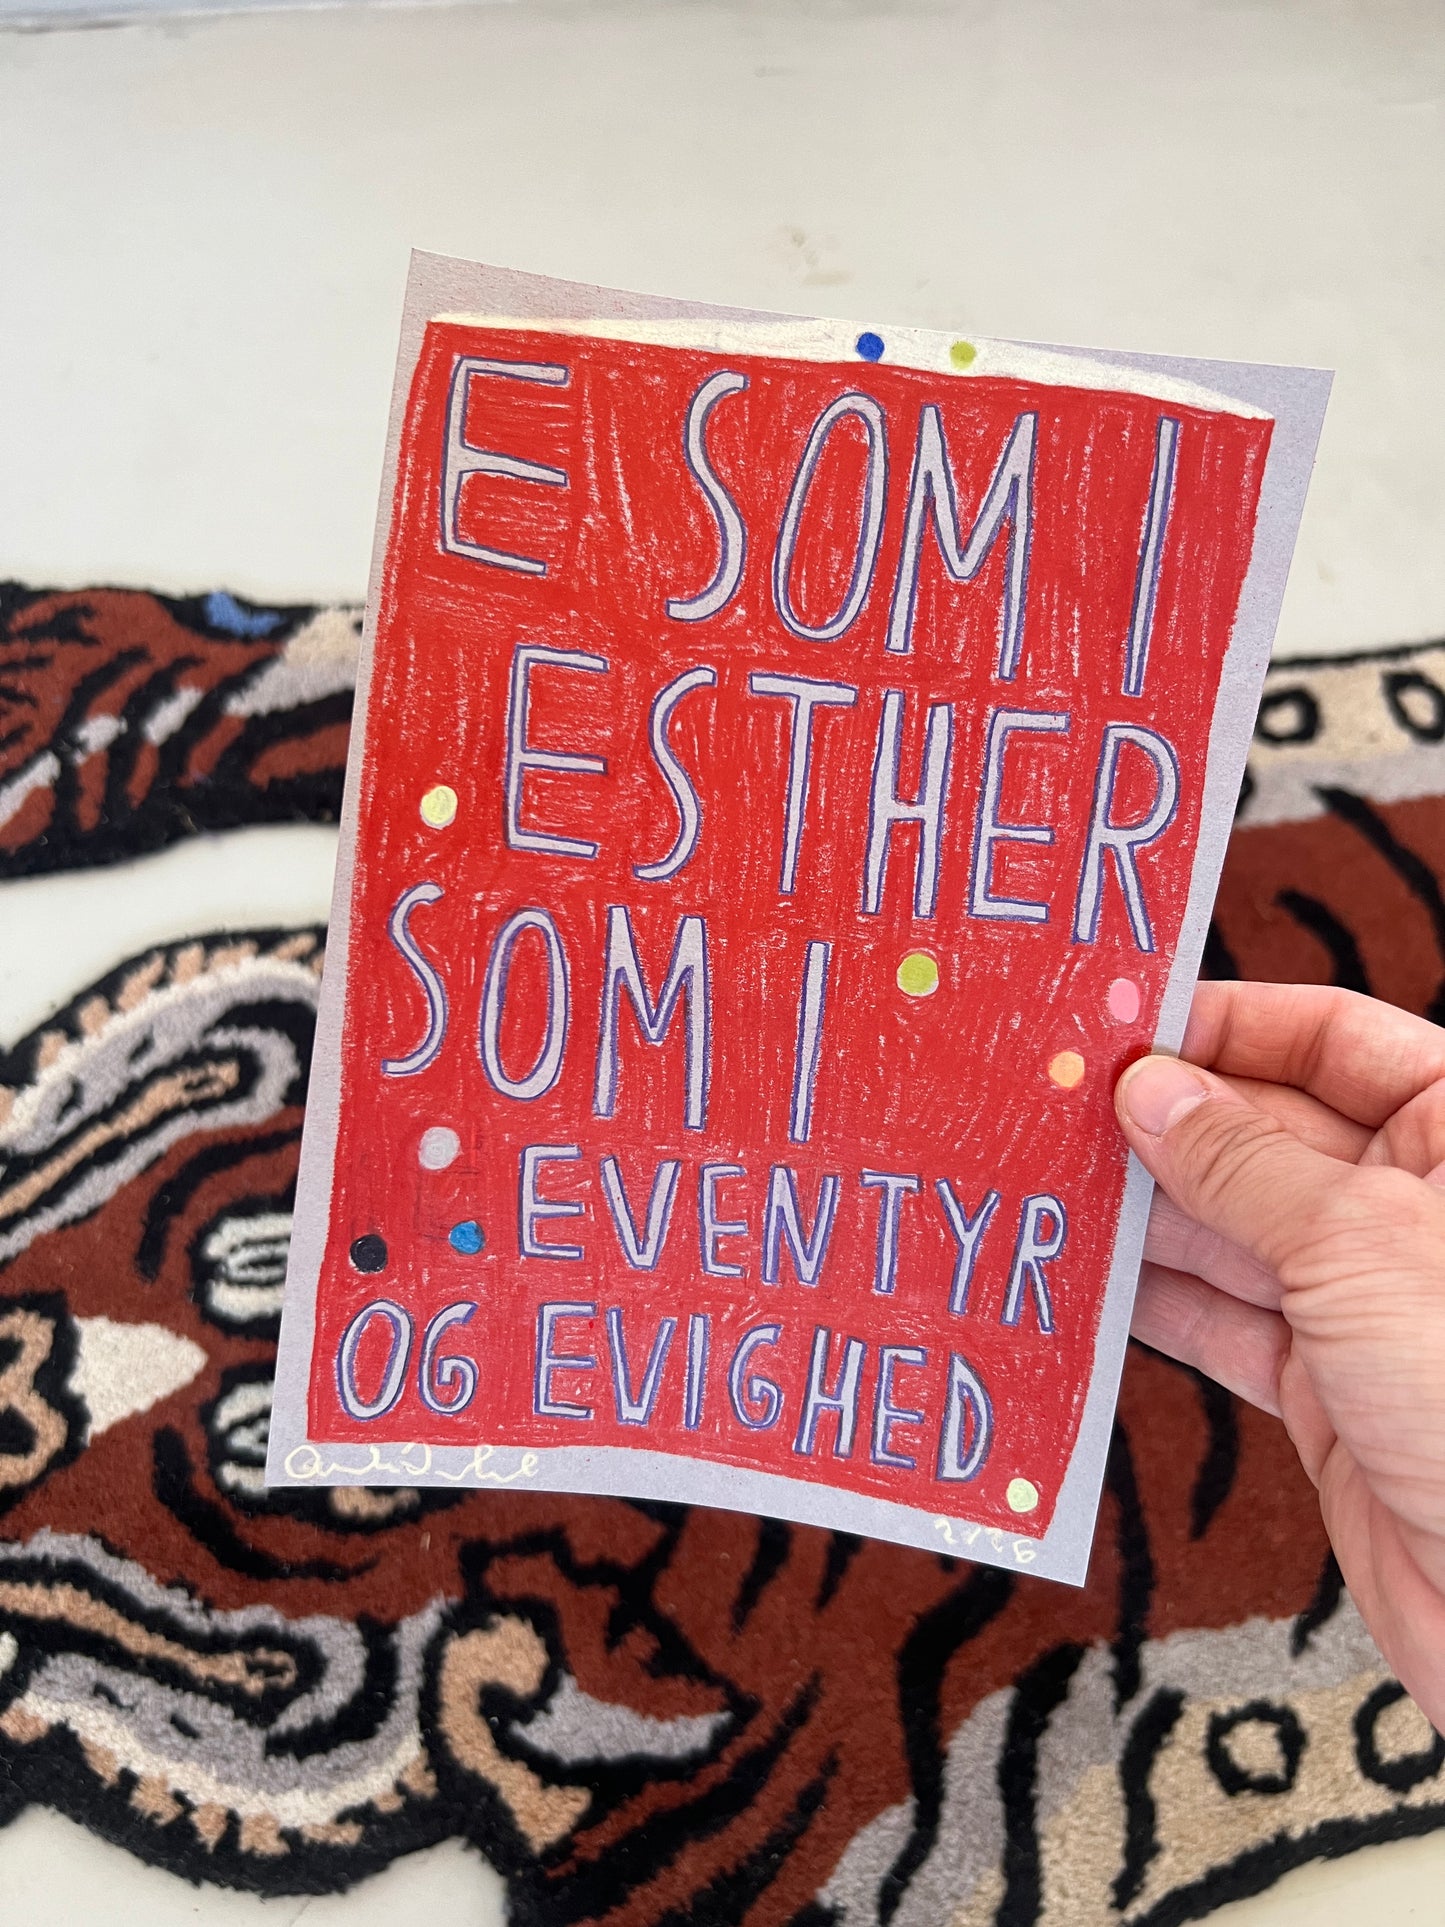 E SOM I
ESTHER
SOM I
EVENTYR
OG EVIGHED
2026